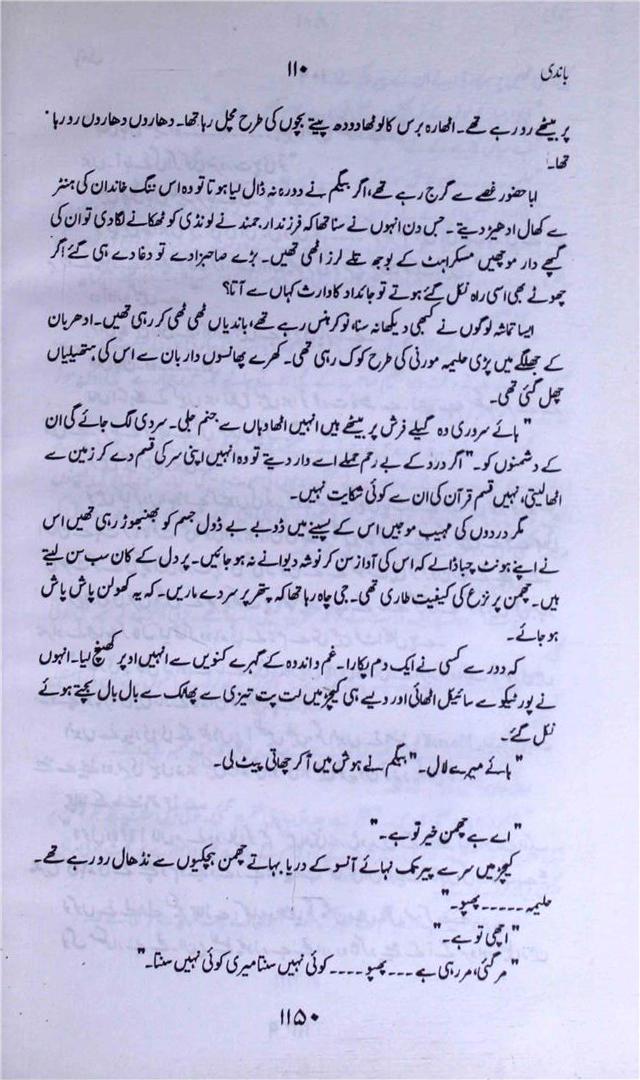 باندی
۱۱۰
پر بیٹھے رو رہے تھے۔ اٹھارہ برس کا لوٹھا دودھ پیتے بچوں کی طرح مچل رہا تھا۔ دھاروں دھاروں رو رہا
تھا۔
ابا حضور غصے سے گرج رہے تھے، اگر بیگم نے دورہ نہ ڈال لیا ہوتا تو وہ اس ننگ خاندان کی ہنٹر
سے کھال ادھیڑ دیتے۔ جس دن انہوں نے سنا تھا کہ فرزند ارجمند نے لونڈی کو ٹھکانے لگا دی تو ان کی
گچھے دار مونچھیں مسکراہٹ کے بوجھ تلے لرز اٹھی تھیں۔ بڑے صاحبزادے تو دغا دے ہی گئے اگر
چھوٹے بھی اسی راہ نکل گئے ہوتے تو جائداد کا وارث کہاں سے آتا؟
ایسا تماشہ لوگوں نے کبھی دیکھا نہ سنا، نوکر ہنس رہے تھے، باندیاں ٹھی ٹھی کر رہی تھیں۔ ادھر بان
کے جھلنگے میں پڑی حلیمہ مورنی کی طرح کوک رہی تھی۔ کھرے پھانسوں دار بان سے اس کی ہتھیلیاں
چھل گئی تھی۔
"ہائے سروری وہ گیلے فرش پر بیٹھے ہیں انہیں اٹھا وہاں سے جنم جلی۔ سردی لگ جائے گی ان
کے دشمنوں کو۔" اگر درد کے بے رحم حملے اسے دار دیتے تو وہ انہیں اپنی سر کی قسم دے کر زمین سے
اٹھا لیتی، نہیں قسم قرآن کی ان سے کوئی شکایت نہیں۔
مگر دردوں کی مہیب موجیں اس کے پسینے میں ڈوبے بے ڈول جسم کو بھنبھوڑ رہی تھیں اس
نے اپنے ہونٹ چبا ڈالے کہ اس کی آواز سن کر نوشہ دیوانے نہ ہو جائیں۔ پر دل کے کان سب سن لیتے
ہیں۔ چھمن پر نزع کی کیفیت طاری تھی۔ جی چاہ رہا تھا کہ پتھر پر سر دے ماریں۔ کہ یہ کھولن پاش پاش
ہو جائے۔
کہ دور سے کسی نے ایک دم پکارا۔ غم و اندوہ کے گہرے کنویں سے انہیں اوپر کھینچ لیا۔ انہوں
نے پورٹیکو سے سائیکل اٹھائی اور ویسے ہی کیچڑ میں لت پت تیزی سے پھاٹک سے بال بال بچتے ہوئے
نکل گئے۔
"ہائے میرے لال۔" بیگم نے ہوش میں آ کر چھاتی پیٹ لی۔
"اے ہے چھمن خیر تو ہے۔"
کیچڑ میں سر سے پیر تک نہائے آنسو کے دریا بہاتے چھمن ہچکیوں سے نڈھال رو رہے تھے۔
حلیمہ ۔۔۔۔۔ پھپو۔"
"اچھی تو ہے۔"
"مر گئی، مر رہی ہے ۔۔۔ پھپو ۔۔۔۔ کوئی نہیں سنتا میری کوئی نہیں سنتا۔"
۱۱۵۰